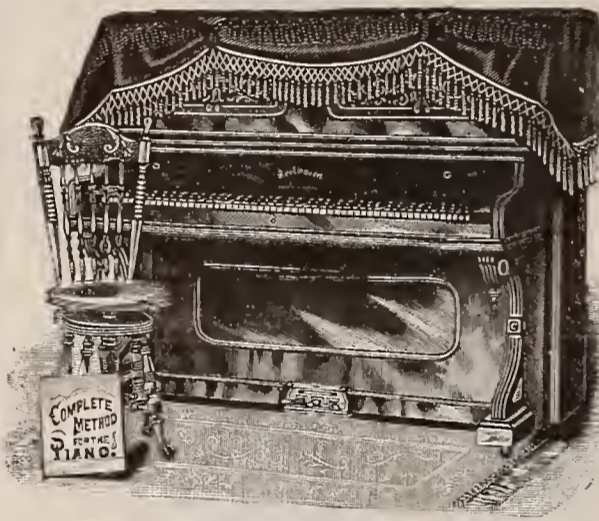 Beethoven
COMPLETE
METHOD
FOR THE
PIANO.